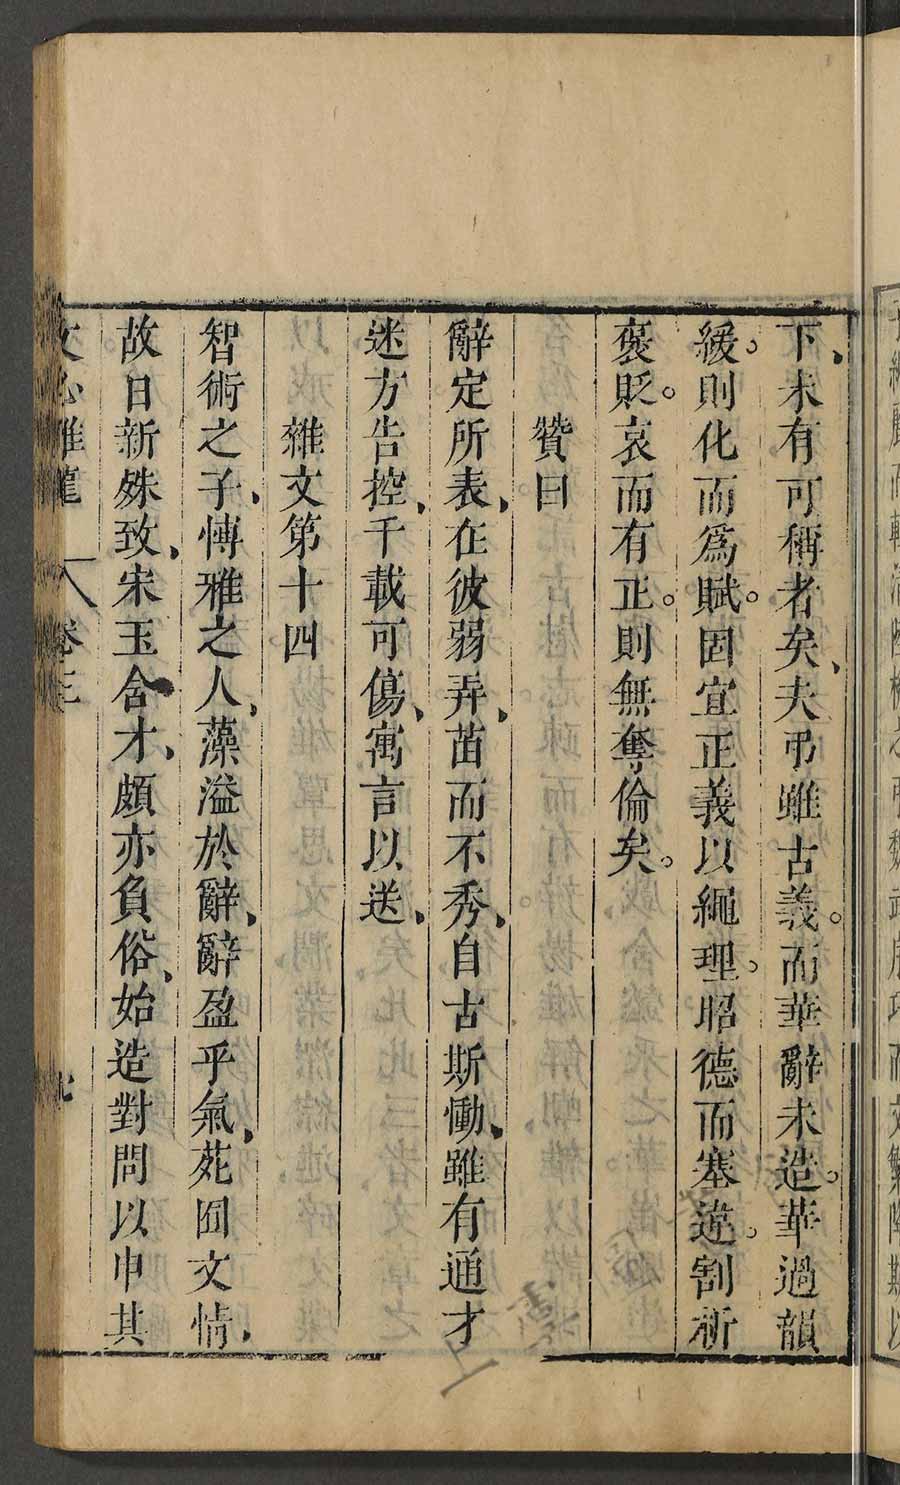 下、未有可稱者矣、夫弔雖古義。而華辭未造。華過韻
緩。則化而爲賦。固宜正義以繩理。昭德而塞違。割析
褒貶。哀而有正。則無奪倫矣。
贊曰
辭定所表、在彼弱弄、苗而不秀、自古斯慟、雖有通才
迷方告控、千載可傷、寓言以送、
雜文第十四
智術之子、慱雅之人、藻溢於辭、辭盈乎氣、苑囿文情、
故日新殊致、宋玉含才、頗亦負俗、始造對問以申其
文心雕龍 卷三